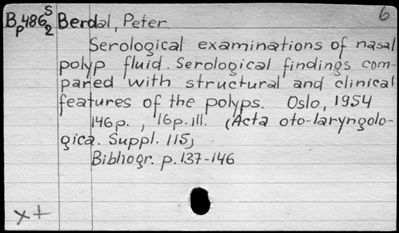 6
Bp486 S2 Berdal, Peter
Serological examinations of nasal
polyp fluid. Serological findings com-
pared with structural and clinical
features of the polyps. Oslo, 1954
146p., 16p. ill. (Acta oto-laryngolo-
gica. Suppl. 115)
Bibliogr. p. 137-146
x+